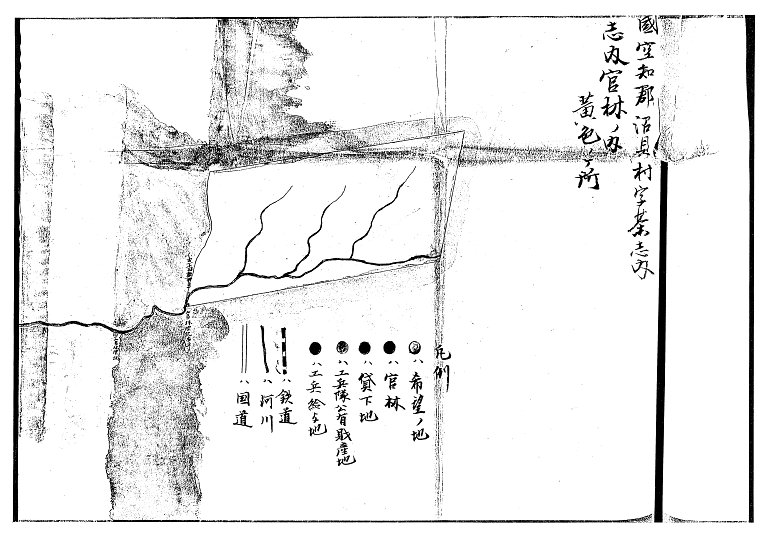 國空知郡沼貝村字茶志内
志内官林ノ内
黄色ノ所
凡例
ハ希望ノ地
ハ官林
ハ貸下地
ハ工兵隊公有財産地
ハ工兵給与地
ハ鉄道
ハ河川
ハ国道